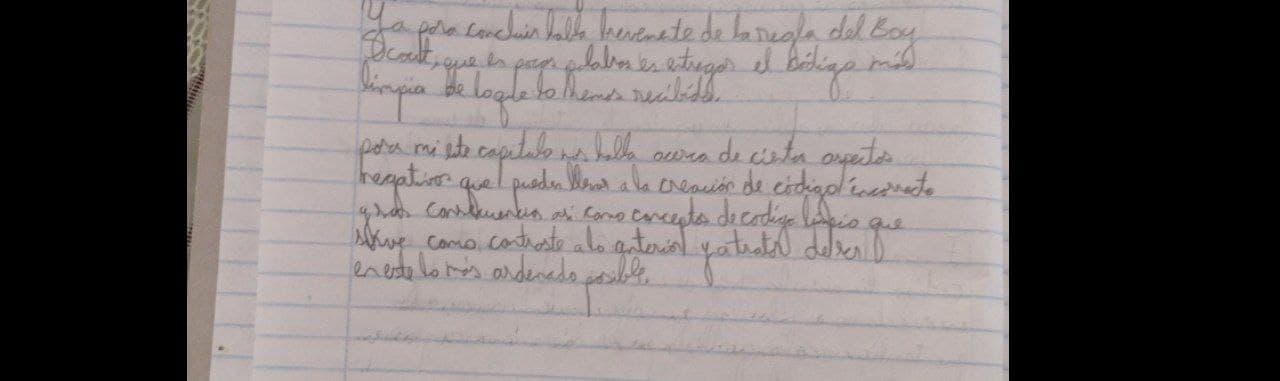 Ya para concluir habla brevemete de la regla del Boy
Scout, que en pocas palabras es entregar el código más
limpia de loque lo hemos recibido.
para mi este capitulo nos habla acerca de ciertos aspectos
negativos que pueden llevar a la creación de código incorrecto
y sus consecuencias asi como conceptos de codigo limpio que
sirve como contraste a lo anterior y a tratar de ser
en este lo más ordenado posible.